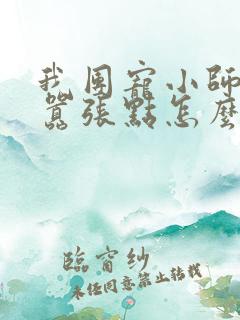 我團寵小師
囂張點怎麼
臨窗紗
未經同意禁止轉載